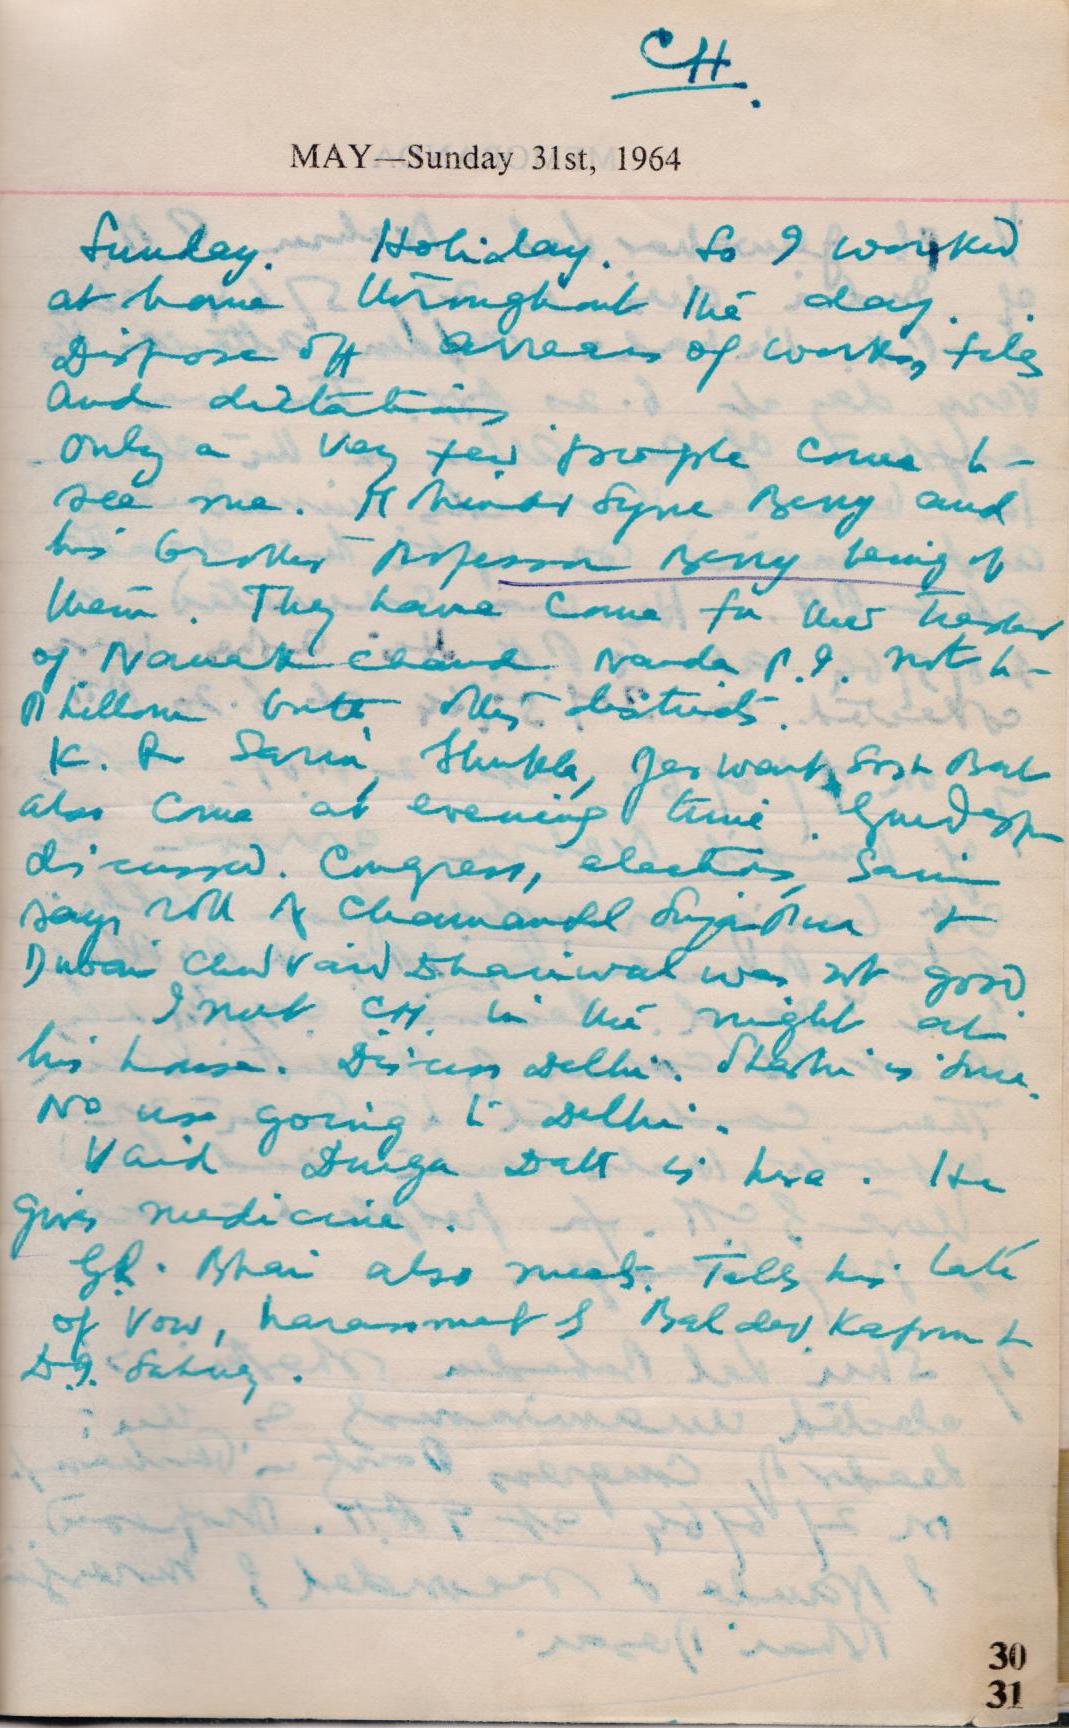 CH.
MAY—Sunday 31st, 1964
Sunday. Holiday. So I worked
at home throughout the day.
Dispose off arrears of works, files
and dictations
Only a very few people come to
see me. Beny and
his brother Professor Beny being of
them. They have come for the transfer
of Nanak Chand Nanda P.I. not to
Dhillon but other districts.
K. R Sarin, Shukla, Jaswant,
also come at evening time.
discussed. Congress, elections, Sarin
says roll of Chamanlal Sujanpur &
Vaid Dhariwal was not good
I met CH. in the night at
his house. Discuss Delhi. Shastri is sure.
No use going to Delhi.
Vaid Durga Datt is here. He
gives medicine.
Bhai also meets. Tells his tale
of vow, harassment of Baldev Kapoor &
D.I.
30
31